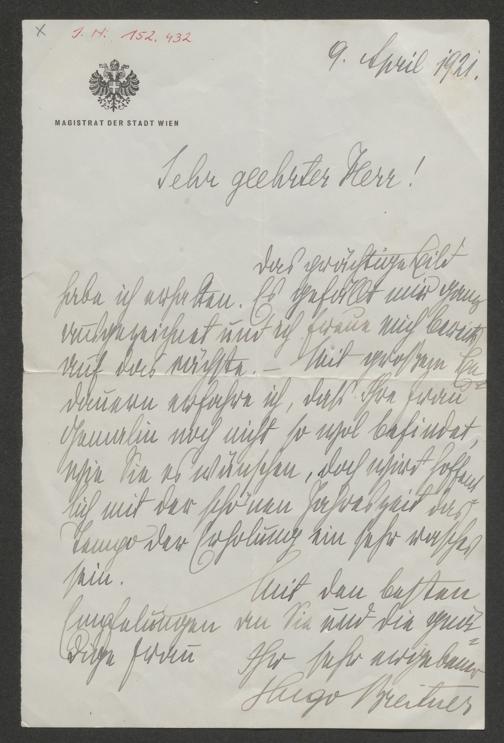 J. N. 152.432
9. April 1921.
MAGISTRAT DER STADT WIEN
Sehr geehrter Herr!
Das prächtige Bild
habe ich erhalten. Es gefällt mir ganz
ausgezeichnet und ich freue mich bereits
auf das nächste. – Mit großem Be-
dauern erfahre ich, daß Ihre Frau
Gemalin noch nicht so wol befindet,
wie Sie es wünschen, doch wird hoffent-
lich mit der schönen Jahreszeit das
Tempo der Erholung ein sehr rasches
sein.
Mit den besten
Empfelungen an Sie und die gnä-
dige Frau
Ihr sehr ergebener
Hugo Breitner